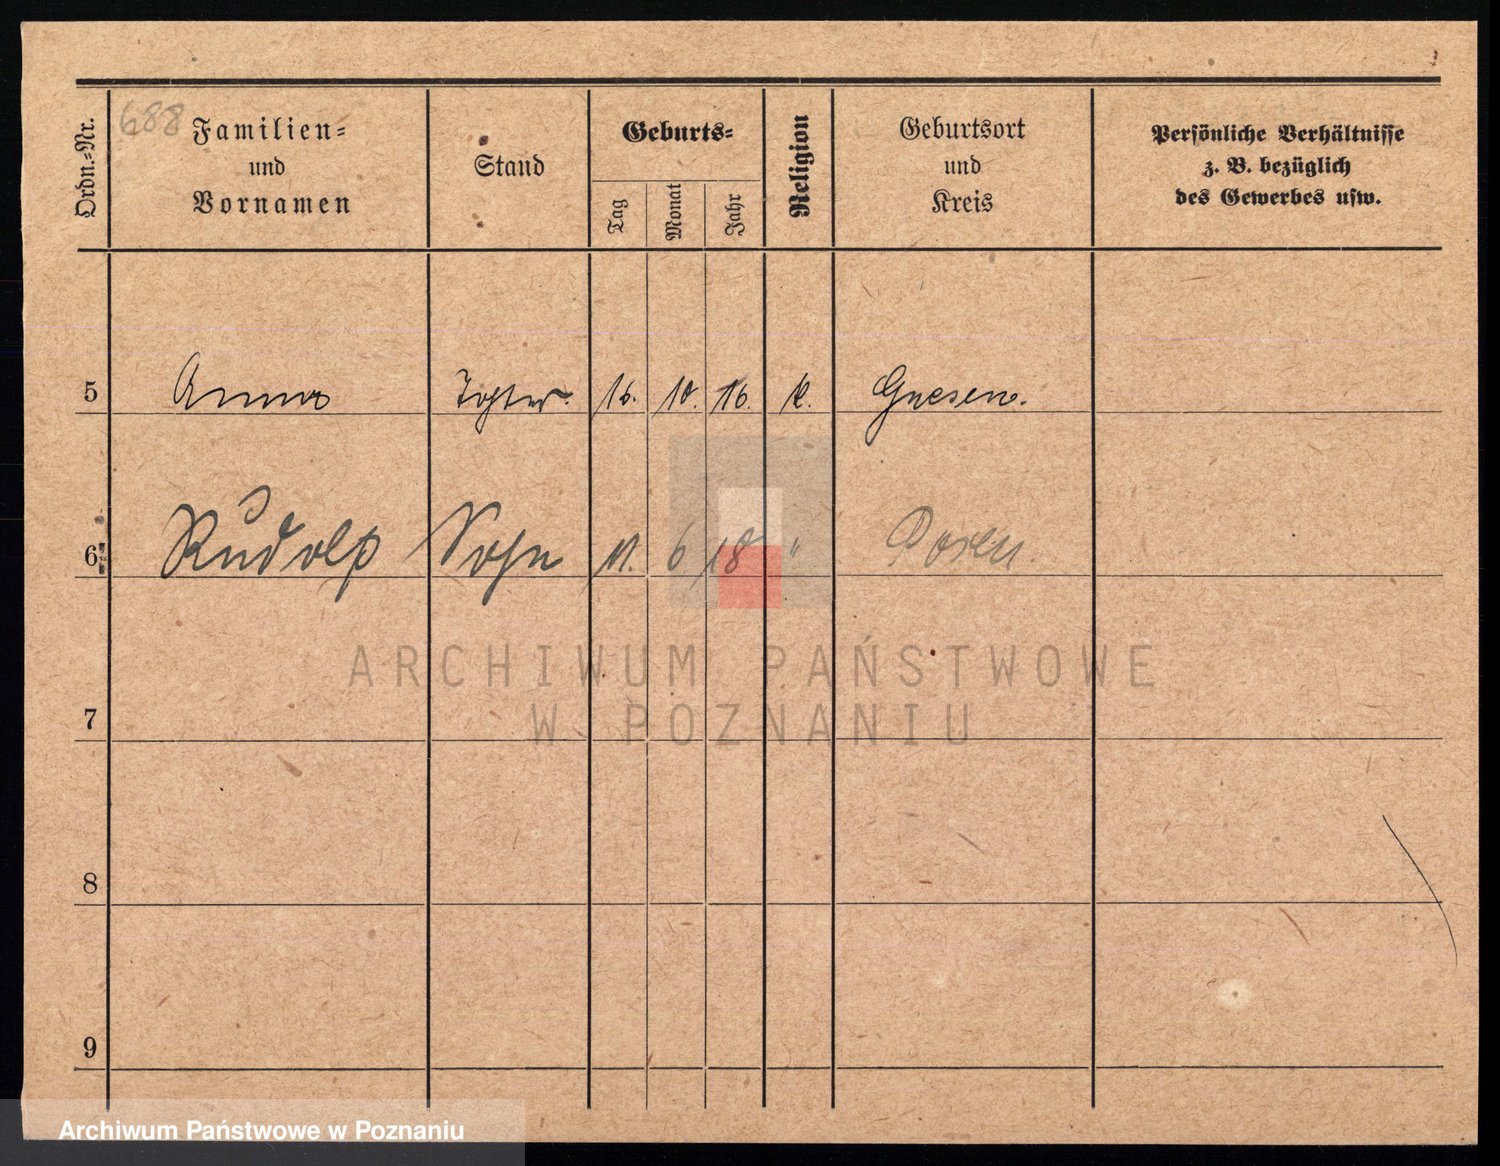 688
Ordn.-Nr.
Familien-
und
Vornamen
Stand
Geburts-
Tag
Monat
Jahr
Religion
Geburtsort
und
Kreis
Persönliche Verhältnisse
z. B. bezüglich
des Gewerbes usw.
5 Anna Tochter. 16. 10. 16. k. Gnesen.
6 Rudolf Sohn 11. 6 18 " Posen.
7
8
9
ARCHIWUM PAŃSTWOWE
W POZNANIU
Archiwum Państwowe w Poznaniu